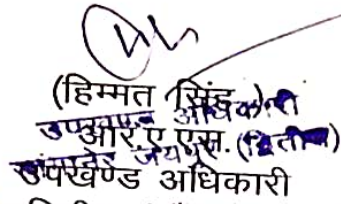 (हिम्मत सिंह)
उपखण्ड अधिकारी
आर.ए.एस.
सांगानेर जयपुर (द्वितीय)
उपखण्ड अधिकारी